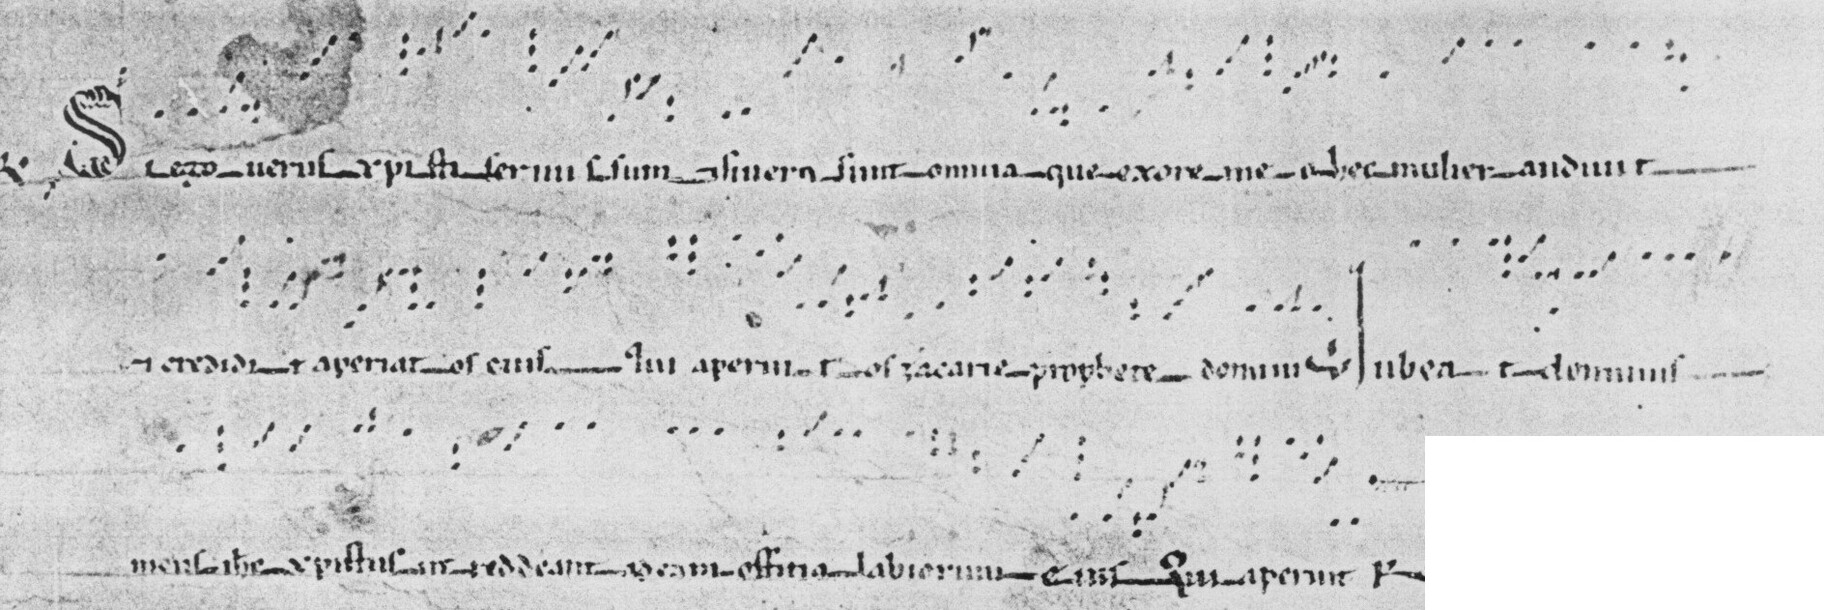 R. Si ego uerus xpisti seruus sum & si uera sunt omnia que ex ore meo hec mulier audiuit
& credidit aperiat os eius Qui aperuit os zacarie prophete domini V Iubeat dominus
meus ihc xpistus ut reddeant ad eam officia labiorum eius Qui aperuit